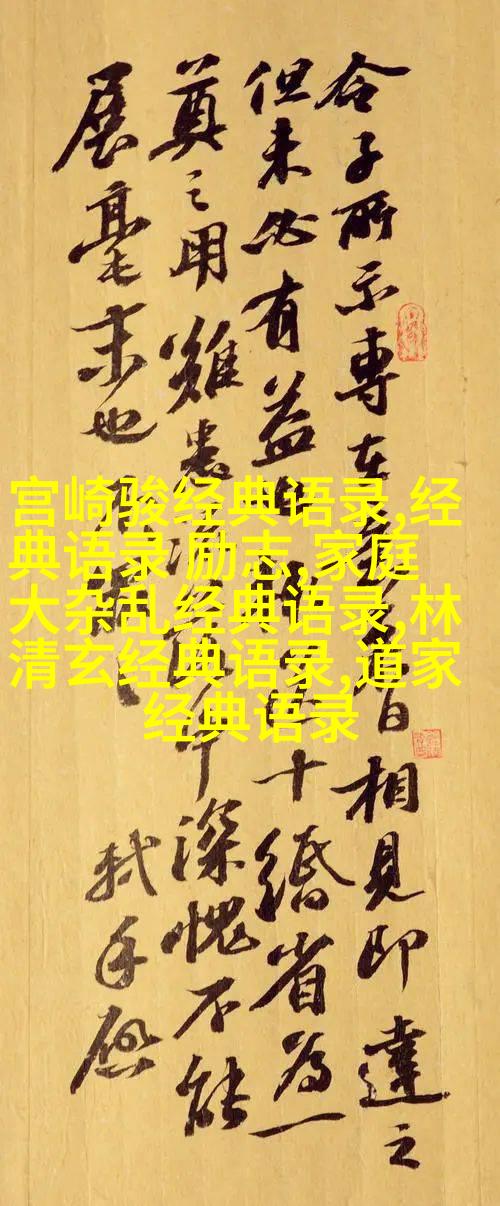 令子所示專在日相見即達之
但未必有益十緡省為一
奠之用雖患深愧不能
展毫末也
軾手啟
宫崎骏经典语录,经
典语录 励志,家庭
大杂乱经典语录,林
清玄经典语录,道家
经典语录